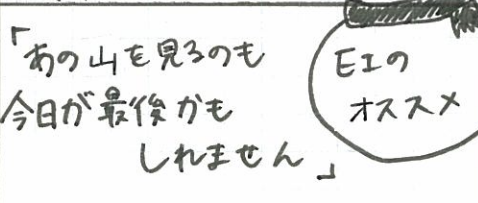 「あの山を見るのも
今日が最後かも
しれません」
EIの
オススメ